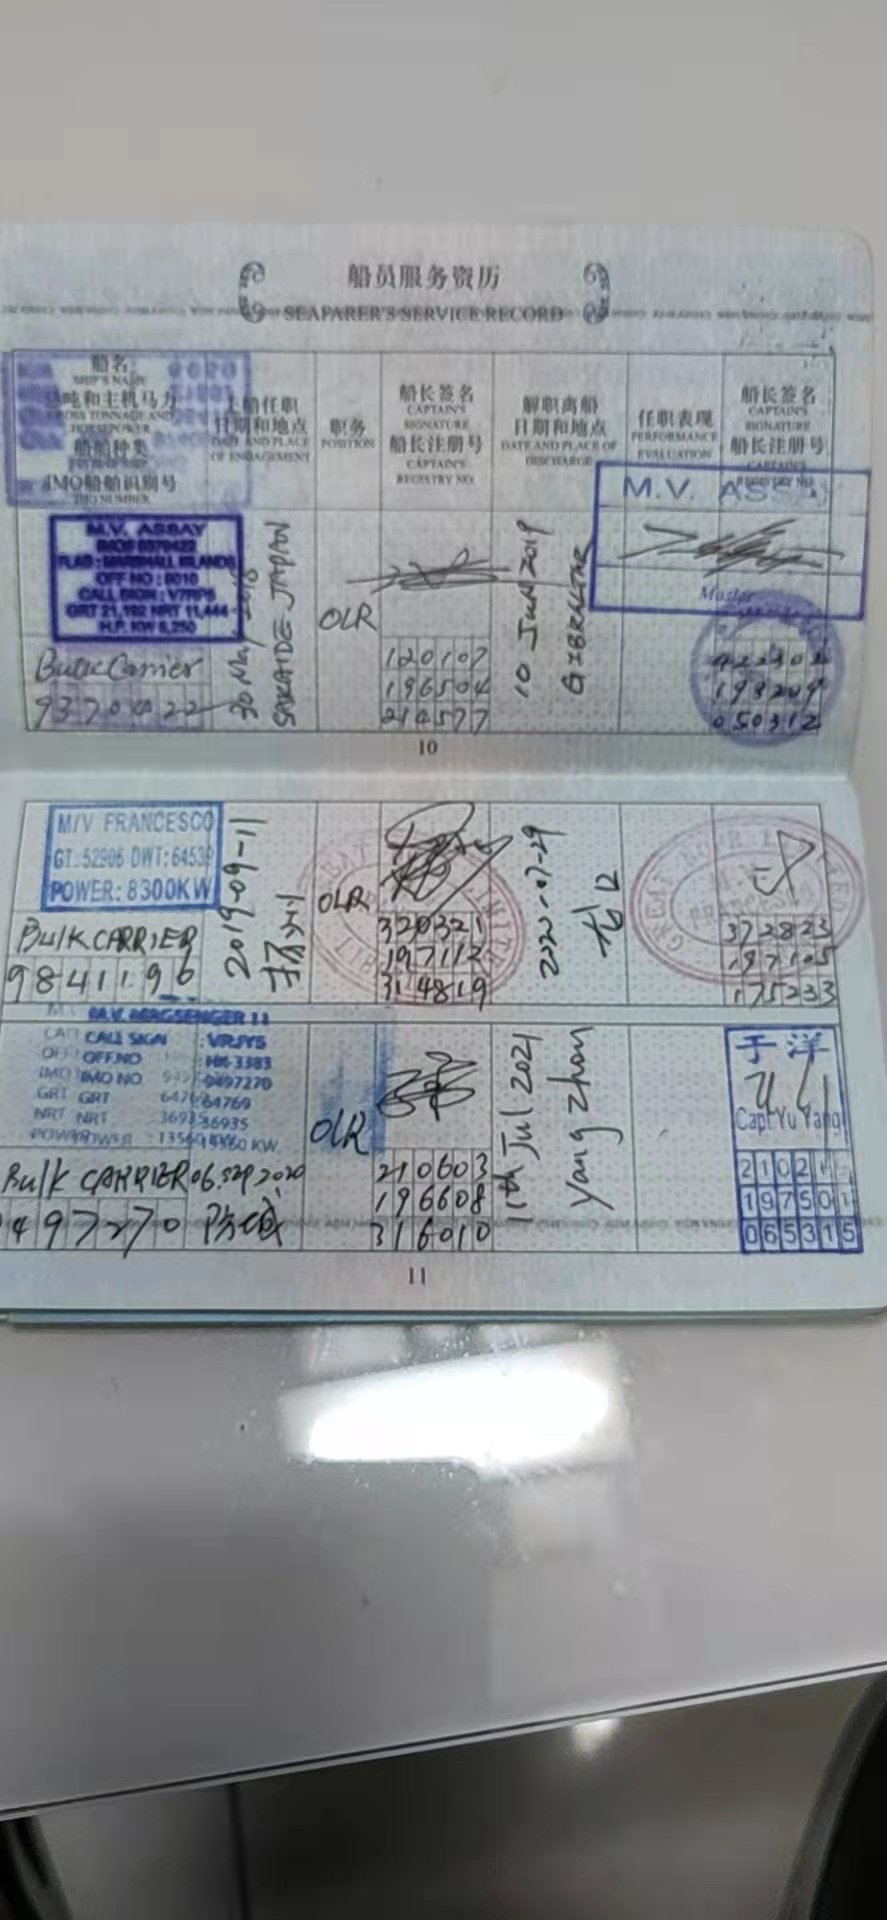 船员服务资历
SEAFARER'S SERVICE RECORD
船名
SHIP'S NAME
吨和主机马力
GROSS TONNAGE AND
HORSEPOWER
船舶种类
IMO船舶识别号
IMO NUMBER
上船任职
日期和地点
DATE AND PLACE
OF ENGAGEMENT
职务
POSITION
船长签名
CAPTAIN'S
SIGNATURE
船长注册号
CAPTAIN'S
REGISTRY NO.
解职离船
日期和地点
DATE AND PLACE OF
DISCHARGE
任职表现
PERFORMANCE
EVALUATION
船长签名
CAPTAIN'S
SIGNATURE
船长注册号
M.V. ASSAY
FLAG : MARSHALL ISLANDS
OFF NO :
CALL SIGN : V7RP5
GRT 21,192 NRT 11,444
H.P. KW 6,250
Bulk Carrier
9370422
30 May 2018
SAKAIDE JAPAN
OLR
120107
196504
214577
10 Jun 2019
GIBRALTAR
M.V. ASSAY
Master
422302
198209
050312
10
M/V FRANCESCO
GT: 52906 DWT: 6453
POWER: 8300KW
Bulk CARRIER
9841196
2019-09-11
OLR
320321
197112
314819
-07-29
372823
197105
175233
CALL SIGN : VRJY5
OFF NO : HK-3383
IMO NO 9497270
GRT 64769
NRT 36935
POWER : 13560 KW.
Bulk CARRIER
9497270
06.sep 2020
防城
OLR
210603
196608
316010
11th Jul 2021
Yang zhou
于洋
Capt Yu Yang
2102
197501
065315
11